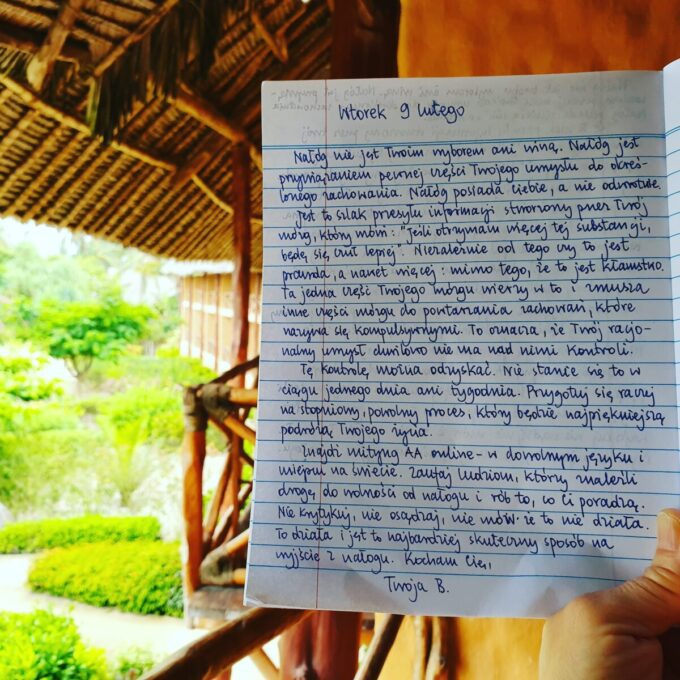 Wtorek 9 lutego
Nałóg nie jest Twoim wyborem ani winą. Nałóg jest
przywiązaniem pewnej części Twojego umysłu do okreś-
lonego zachowania. Nałóg posiada Ciebie, a nie odwrotnie.
Jest to szlak przesyłu informacji stworzony przez Twój
mózg, który mówi: "jeśli otrzymam więcej tej substancji,
będę się czuć lepiej". Niezależnie od tego czy to jest
prawda, a nawet więcej: mimo tego, że to jest kłamstwo.
Ta jedna część Twojego mózgu wierzy w to i zmusza
inne części mózgu do powtarzania zachowań, które
nazywa się kompulsywnymi. To oznacza, że Twój racjo-
nalny umysł chwilowo nie ma nad nimi kontroli.
Tę kontrolę można odzyskać. Nie stanie się to w
ciągu jednego dnia ani tygodnia. Przygotuj się raczej
na stopniowy, powolny proces, który będzie najpiękniejszą
podróżą Twojego życia.
Znajdź mityng AA online - w dowolnym języku i
miejscu na świecie. Zaufaj ludziom, którzy znaleźli
drogę do wolności od nałogu i rób to, co Ci poradzą.
Nie krytykuj, nie osądzaj, nie mów że to nie działa.
To działa i jest to najbardziej skuteczny sposób na
wyjście z nałogu. Kocham Cię,
Twoja B.